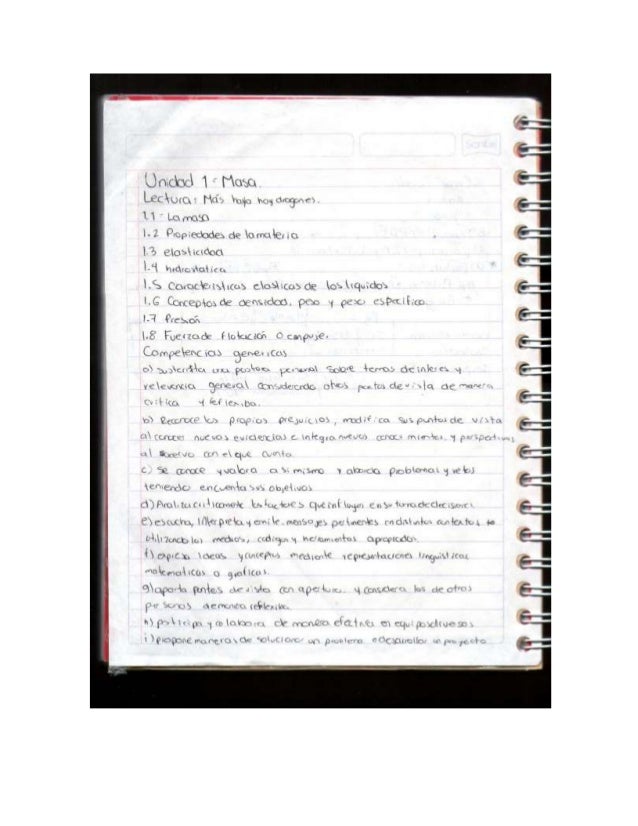 Scribe
Unidad 1: Masa.
Lectura: Más hoja hoy dragones.
1.1 - La masa
1.2 Propiedades de la materia
1.3 elasticidad
1.4 hidrostatica
1.5 Caracteristicas elasticas de los liquidos
1.6 Conceptos de densidad, peso y peso especifico.
1.7 Presión
1.8 Fuerza de flotación o empuje.
Competencias genericas
a) sustenta una postura personal sobre temas de interes y
relevencia general considerando otros puntos de vista de manera
critica y reflexiba.
b) Reconoce los propios prejuicios, modifica sus puntos de vista
al conocer nuevas evidencias e integra nuevos conocimientos, y perspectivas
al con el que cuenta.
c) Se conoce y valora a si mismo y aborda problemas y retos
teniendo en cuenta sus objetivos
d) Analiza criticamente los factores que influyen en su toma de decisiones.
e) escucha, Interpreta y emite mensajes pertinentes en distintos contextos
utilizando los medios, codigos y herramientas apropiados.
f) expresa Ideas y conceptos mediante representaciones linguisticas
matematicas o graficas.
g) aporta puntos de vista con apertura y considera los de otros
personas de manera reflexiba.
h) participa y colabora de manera efectiva en equipos diversos
i) propone maneras de solucionar un problema o desarrollar un proyecto